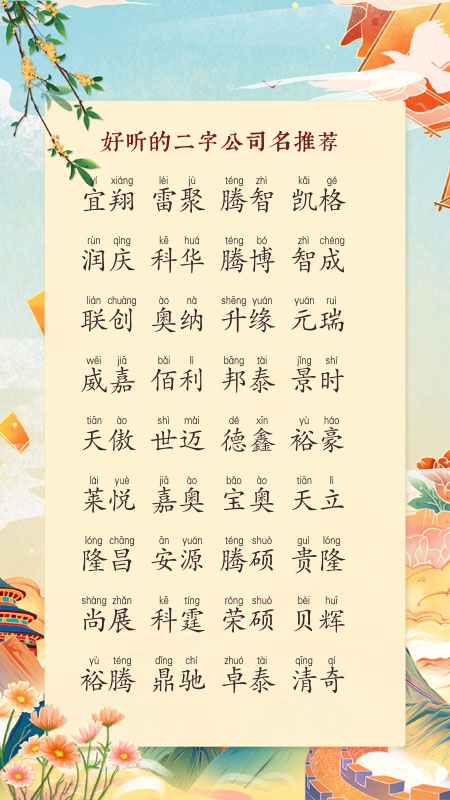 好听的二字公司名推荐
yí xiáng léi jù téng zhì kǎi gé
宜翔 雷聚 腾智 凯格
rùn qìng kē huá téng bó zhì chéng
润庆 科华 腾博 智成
lián chuàng ào nà shēng yuán yuán ruì
联创 奥纳 升缘 元瑞
wēi jiā bǎi lì bāng tài jǐng shí
威嘉 佰利 邦泰 景时
tiān ào shì mài dé xīn yù háo
天傲 世迈 德鑫 裕豪
lái yuè jiā ào bǎo ào tiān lì
莱悦 嘉奥 宝奥 天立
lóng chāng ān yuán téng shuò guì lóng
隆昌 安源 腾硕 贵隆
shàng zhǎn kē tíng róng shuò bèi huī
尚展 科霆 荣硕 贝辉
yù téng dǐng chí zhuó tài qīng qí
裕腾 鼎驰 卓泰 清奇